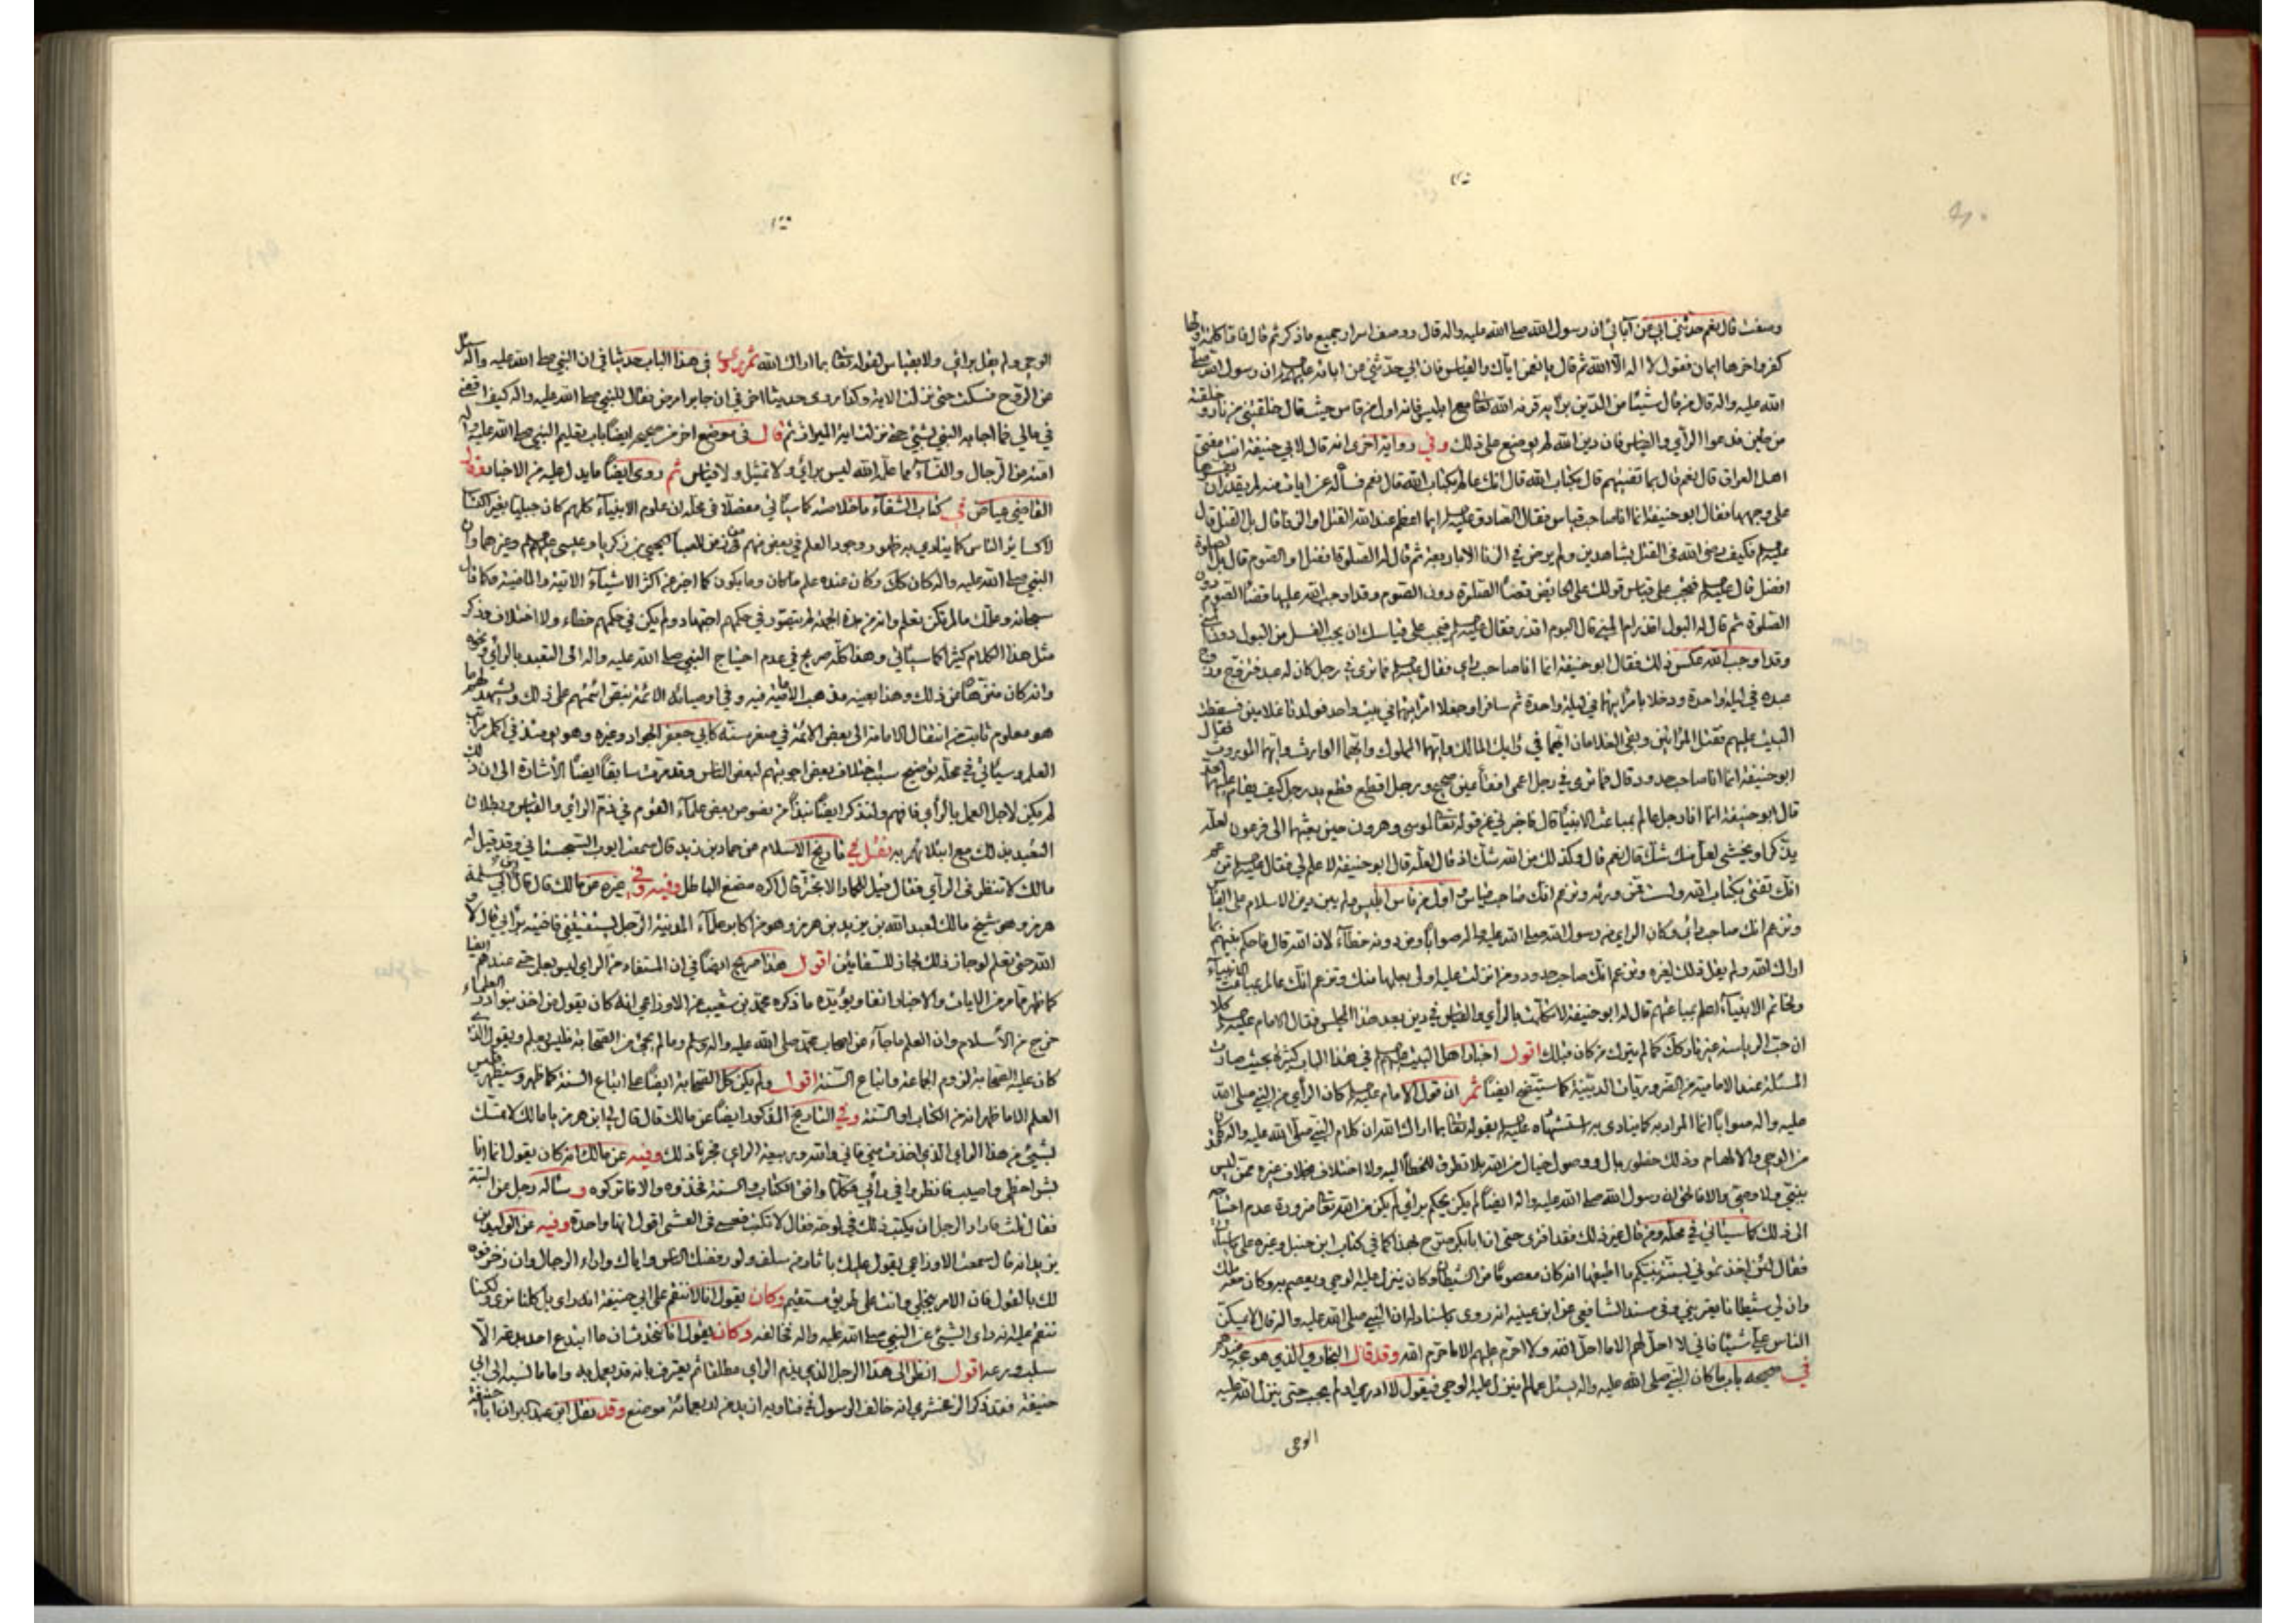 وصفت قال نعم حدثني ابي عن آبائي ان رسول الله صلى الله عليه واله قال ووصف اسرار جميع ما ذكر ثم قال فاما كلمة اولها
كفر واخرها ايمان فقول لا اله الا الله ثم قال يا نعمن اياك والقياس فان ابي حدثني عن ابائه عليهم السلام ان رسول الله صلى
الله عليه واله قال من قاس شيئا من الدين برأيه قرنه الله تعالى مع ابليس فانه اول من قاس حيث قال خلقتني من نار وخلقته
من طين فدعوا الرأي والقياس فان دين الله لم يوضع على ذلك وفي رواية اخرى انه قال لابي حنيفة انت مفتي
اهل العراق قال نعم قال بما تفتيهم قال بكتاب الله قال انك عالم بكتاب الله قال نعم فسأله عن ايات منه لم يقدر ان يفسرها
على وجهها فقال ابو حنيفة انما انا صاحب قياس فقال الصادق عليه السلام ايما اعظم عند الله القتل او الزنا قال بل القتل قال
عليه السلام فكيف رضى الله في القتل بشاهدين ولم يرض في الزنا الا باربعة ثم قال له الصلوة افضل او الصوم قال بل الصلوة
افضل قال عليه السلام فيجب على قياس قولك على الحائض قضاء الصلوة دون الصوم وقد اوجب الله عليها قضاء الصوم دون
الصلوة ثم قال له البول اقذر ام المني قال البول اقذر فقال عليه السلام فيجب على قياسك ان يجب الغسل من البول دون المني
وقد اوجب الله عكس ذلك فقال ابو حنيفة انما انا صاحب رأي فقال عليه السلام فما ترى في رجل كان له عبد فتزوج وزوج
عبده في ليلة واحدة ودخلا بامرأتيهما في ليلة واحدة ثم سافرا وجعلا امرأتيهما في بيت واحد فولدتا غلامين فسقط
البيت عليهم فقتل المرأتين وبقى الغلامان ايهما في رأيك المالك وايهما المملوك وايهما الوارث وايهما الموروث فقال
ابو حنيفة انما انا صاحب حدود قال فما ترى في رجل اعمى فقأ عين صحيح ورجل اقطع قطع يد رجل كيف يقام عليهما الحد
قال ابو حنيفة انما انا رجل عالم بمباعث الانبياء قال فاخبرني عن قوله تعالى لموسى وهرون حين بعثهما الى فرعون لعله
يتذكر او يخشى لعل منك شك قال نعم قال وكذلك من الله شك اذ قال لعله قال ابو حنيفة لا علم لي فقال عليه السلام تزعم
انك تفتي بكتاب الله ولست ممن ورثه وتزعم انك صاحب قياس واول من قاس ابليس ولم يبن دين الاسلام على القياس
وتزعم انك صاحب رأي وكان الرأي من رسول الله صلى الله عليه واله صوابا ومن دونه خطاء لان الله قال فاحكم بينهم بما
اراك الله ولم يقل ذلك لغيره وتزعم انك صاحب حدود ومن انزلت عليه اولى بعلمها منك وتزعم انك عالم بمباعث الانبياء
ولخاتم الانبياء اعلم بمباعثهم قال له ابو حنيفة لا تكلمت بالرأي والقياس في دين بعد هذا المجلس فقال الامام عليه السلام كلا
ان حب الرياسة غير تاركك كما لم يترك من كان قبلك اقول اخبار اهل البيت عليهم السلام في هذا الباب كثيرة بحيث صارت
المسئلة عند الامامية من الضروريات الدينية كما سيتضح ايضا ثم ان قول الامام عليه السلام كان الرأي من النبي صلى الله
عليه واله صوابا انما المراد به كما ينادى به استشهاده عليه السلام بقوله تعالى بما اراك الله ان كلام النبي صلى الله عليه واله
من الوحي والالهام وذلك خطور بال ووصول خيال من الله بلا تطرق للخطأ اليه ولا اختلاف بخلاف غيره ممن ليس
بنبي ولا وصي والا فالحق ان رسول الله صلى الله عليه واله ايضا لم يكن يحكم برأي لم يكن من الله تعالى ضرورة عدم احتياجه
الى ذلك كما سيأتي في محله ومن قال غير ذلك فقد افترى حتى ان ابا بكر صرح بهذا كما في كتاب ابن حنبل وغيره على ما سيأتي
فقال لئن اخذتموني بسنة نبيكم ما اطيقها انه كان معصوما من الشيطان وكان ينزل عليه الوحي ويعصم به وكان معه ملك
وان لي شيطانا يعتريني وفي مسند الشافعي عن ابن عيينه انه روى باسناد له ان النبي صلى الله عليه واله قال لا يمسكن
الناس علي شيئا فاني لا احل لهم الا ما احل الله ولا احرم عليهم الا ما حرم الله وقد قال البخاري الذي هو
في صحيحه باب ما كان النبي صلى الله عليه واله يسئل عما لم ينزل عليه الوحي فيقول لا ادري او لم يجب حتى ينزل الله عليه
الوحي
الوحي ولم يقل برأي ولا بقياس لقوله تعالى بما اراك الله ثم روى في هذا الباب حديثا في ان النبي صلى الله عليه واله سئل
عن الروح فسكت حتى نزلت الاية وكذا روى حديثا اخر في ان جابرا مرض فقال للنبي صلى الله عليه واله كيف اقضي
في مالي فما اجابه النبي بشيء حتى نزلت اية الميراث ثم قال في موضع اخر من صحيحه ايضا باب تعليم النبي صلى الله عليه واله
امته من الرجال والنساء مما علمه الله ليس برأي ولا تمثيل ولا قياس ثم روى ايضا ما يدل عليه من الاخبار وقال
القاضي عياض في كتاب الشفاء ما خلاصته كما سيأتي مفصلا في محله ان علوم الانبياء كلهم كان جبليا بغير اكتساب
لا كسائر الناس كما ينادي به ظهور وجود العلم في بعض منهم في زمن الصبا كيحيى بن زكريا وعيسى عليهم السلام وغيرهما وان
النبي صلى الله عليه واله كان كذلك وكان عنده علم ما كان وما يكون كما اخبر عن اكثر الاشياء الاتية والماضية وكما قال
سبحانه وعلمك ما لم تكن تعلم وانه من هذه الجهة لم يتصور في حكمهم اجتهاد ولم يكن في حكمهم خطاء ولا اختلاف وذكر
مثل هذا الكلام كثيرا كما سيأتي وهذا كله صريح في عدم احتياج النبي صلى الله عليه واله الى التعبد بالرأي ونحوه
وانه كان منزها من ذلك وهذا بعينه مذهب الامامية فيه وفي اوصيائه الائمة بنص ائمتهم على ذلك ويشهد لهم ما
هو معلوم ثابت من انتقال الامامة الى بعض الائمة في صغر سنه كابي جعفر الجواد وغيره وهو يومئذ في اكمل مراتب
العلم وسيأتي في محله توضيح سبب اختلاف بعض اجوبتهم لبعض الناس وقد مرت سابقا ايضا الاشارة الى ان ذلك
لم يكن لاجل العمل بالرأي فافهم ولنذكر ايضا نبذا من نصوص بعض علماء القوم في ذم الرأي والقياس وبطلان
التعبد بذلك مع ابتلائهم به نقل في تاريخ الاسلام عن حماد بن زيد قال سمعت ايوب السجستاني وقد قيل له
مالك لا تنظر في الرأي فقال قيل للحمار الا تجتر قال اكره مضغ الباطل وفيه وفي غيره عن مالك قال قال لي
هرمز وهو شيخ مالك لعبد الله بن يزيد بن هرمز وهو من اكابر علماء المدينة الرجل يستفتيني فافتيه برأيي قال لا و
الله حتى تعلم لو جاز ذلك لجاز للسقائين اقول هذا صريح ايضا في ان المستفاد من الرأي ليس بعلم حتى عندهم ايضا
كما ظهر مما مر من الايات والاخبار انفا ويؤيده ما ذكره محمد بن شعيب عن الاوزاعي انه كان يقول من اخذ بنوادر العلماء
خرج من الاسلام وان العلم ما جاء عن اصحاب محمد صلى الله عليه واله وسلم وما لم يجئ من الصحابة فليس بعلم ويقول الذي
كان عليه الصحابة لزوم الجماعة واتباع السنة اقول ولم يكن كل الصحابة ايضا على اتباع السنة كما ظهر وسيظهر فليس
العلم الا ما ظهر انه من الكتاب او السنة وفي التاريخ المذكور ايضا عن مالك قال قال لي ابن هرمز يا مالك لا تمسك
بشيء من هذا الرأي الذي اخذت مني فاني والله وربيعة الرأي فجرنا ذلك وفيه عن مالك انه كان يقول انما انا
بشر اخطي واصيب فانظروا في رأيي فكلما وافق الكتاب والسنة فخذوه والا فاتركوه وسأله رجل عن البتة
فقال ثلث فاراد الرجل ان يكتب ذلك في لوحة فقال لا تكتب فعسى في العشي اقول انها واحدة وفيه عن الوليد بن
يزيد انه قال سمعت الاوزاعي يقول عليك باثار من سلف ولو رفضك الناس واياك واراء الرجال وان زخرفوه
لك بالقول فان الامر ينجلي وانت على طريق مستقيم وكان يقول انا لا ننقم على ابي حنيفة انه رأى كلنا نرى ولكنا
ننقم عليه انه رأى الشيء عن النبي صلى الله عليه واله فخالفه وكان يقول انا نتحدث ان ما ابتدع احد بدعة الا
سلب ورعه اقول انظر الى هذا الرجل الذي يذم الرأي مطلقا ثم يعترف بانه قد يعمل به واما ما نسبه الى ابي
حنيفة فقد ذكر الزمخشري انه خالف الرسول في فتاويه ازيد من اربعمائة موضع وقد نقل ابن عبد البر ان ابا حنيفة